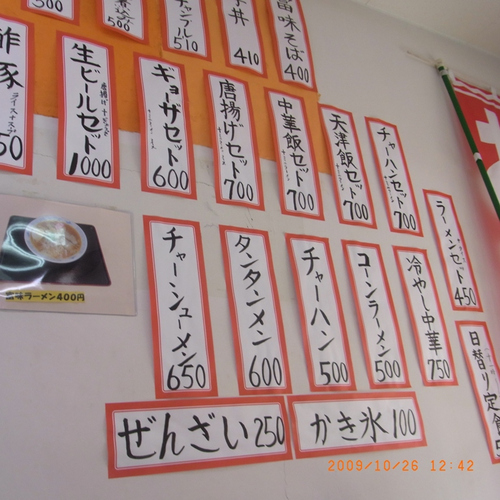 500
500
チャンプル 510
丼 410
味そば 400
酢豚
50
生ビールセット 1000
ギョーザセット 600
唐揚げセット 700
中華飯セット 700
天津飯セット 700
チャーハンセット 700
ラーメンセット 450
ラーメン400円
チャーシューメン 650
タンタンメン 600
チャーハン 500
コーンラーメン 500
冷やし中華 750
日替り定食
ぜんざい 250
かき氷 100
2009/10/26 12:42